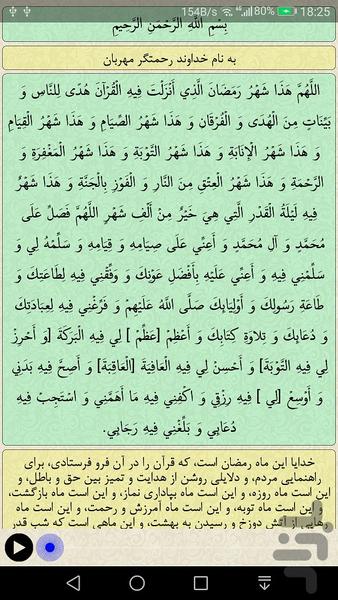 184B/s 4G 80% 18:25
بِسْمِ اللَّهِ الرَّحْمَنِ الرَّحِيمِ
به نام خداوند رحمتگر مهربان
اللَّهُمَّ هَذَا شَهْرُ رَمَضَانَ الَّذِي أَنْزَلْتَ فِيهِ الْقُرْآنَ هُدًى لِلنَّاسِ وَ
بَيِّنَاتٍ مِنَ الْهُدَى وَ الْفُرْقَانِ وَ هَذَا شَهْرُ الصِّيَامِ وَ هَذَا شَهْرُ الْقِيَامِ
وَ هَذَا شَهْرُ الْإِنَابَةِ وَ هَذَا شَهْرُ التَّوْبَةِ وَ هَذَا شَهْرُ الْمَغْفِرَةِ وَ
الرَّحْمَةِ وَ هَذَا شَهْرُ الْعِتْقِ مِنَ النَّارِ وَ الْفَوْزِ بِالْجَنَّةِ وَ هَذَا شَهْرٌ
فِيهِ لَيْلَةُ الْقَدْرِ الَّتِي هِيَ خَيْرٌ مِنْ أَلْفِ شَهْرٍ اللَّهُمَّ فَصَلِّ عَلَى
مُحَمَّدٍ وَ آلِ مُحَمَّدٍ وَ أَعِنِّي عَلَى صِيَامِهِ وَ قِيَامِهِ وَ سَلِّمْهُ لِي وَ
سَلِّمْنِي فِيهِ وَ أَعِنِّي عَلَيْهِ بِأَفْضَلِ عَوْنِكَ وَ وَفِّقْنِي فِيهِ لِطَاعَتِكَ وَ
طَاعَةِ رَسُولِكَ وَ أَوْلِيَائِكَ صَلَّى اللَّهُ عَلَيْهِمْ وَ فَرِّغْنِي فِيهِ لِعِبَادَتِكَ
وَ دُعَائِكَ وَ تِلاوَةِ كِتَابِكَ وَ أَعْظِمْ [عَظِّمْ ] لِي فِيهِ الْبَرَكَةَ [وَ أَحْرِزْ
لِي فِيهِ التَّوْبَةَ] وَ أَحْسِنْ لِي فِيهِ الْعَافِيَةَ [الْعَاقِبَةَ] وَ أَصِحَّ فِيهِ بَدَنِي
وَ أَوْسِعْ [لِي ] فِيهِ رِزْقِي وَ اكْفِنِي فِيهِ مَا أَهَمَّنِي وَ اسْتَجِبْ فِيهِ
دُعَائِي وَ بَلِّغْنِي فِيهِ رَجَائِي.
خدایا این ماه رمضان است، که قرآن را در آن فرو فرستادی، برای
راهنمایی مردم، و دلایلی روشن از هدایت و تمیز بین حق و باطل، و
این است ماه روزه، و این است ماه بپاداری نماز، و این است ماه بازگشت،
و این است ماه توبه، و این است ماه آمرزش و رحمت، و این است ماه
رهایی از آتش دوزخ و رسیدن به بهشت، و این ماهی است که شب قدر